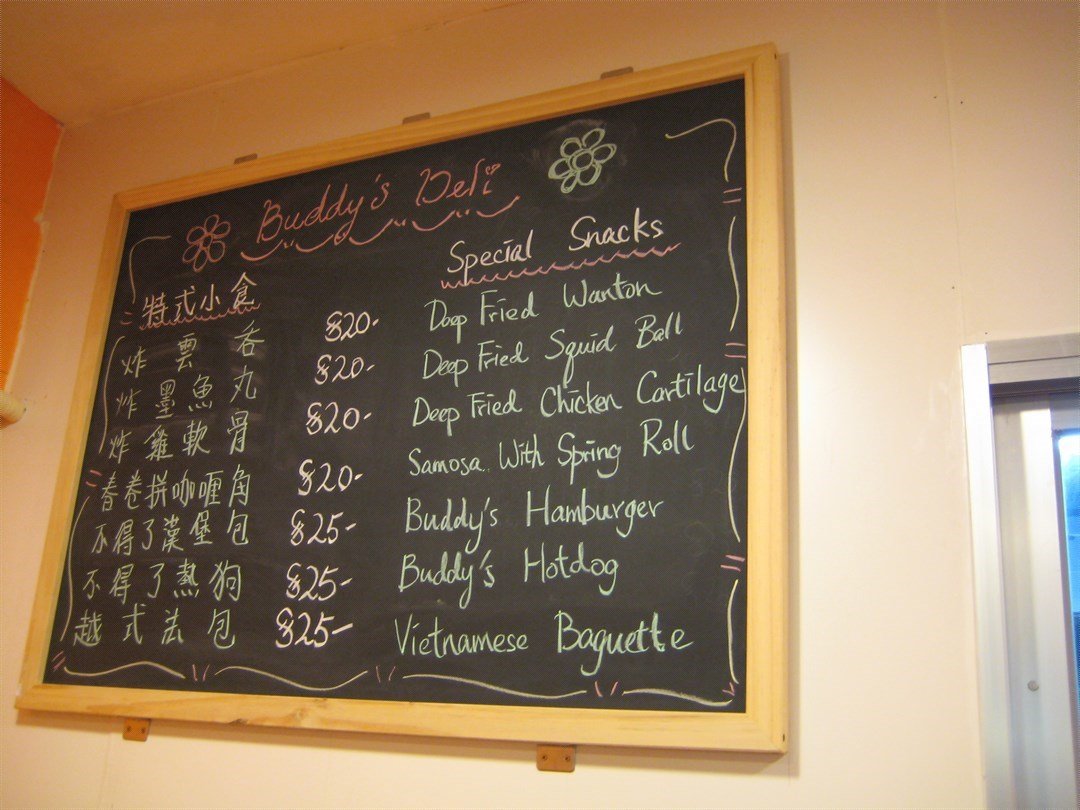 Buddy's Deli
特式小食 Special Snacks
炸雲吞 $20- Deep Fried Wanton
炸墨魚丸 $20- Deep Fried Squid Ball
炸雞軟骨 $20- Deep Fried Chicken Cartilage
春卷拼咖喱角 $20- Samosa With Spring Roll
不得了漢堡包 $25- Buddy's Hamburger
不得了熱狗 $25- Buddy's Hotdog
越式法包 $25- Vietnamese Baguette